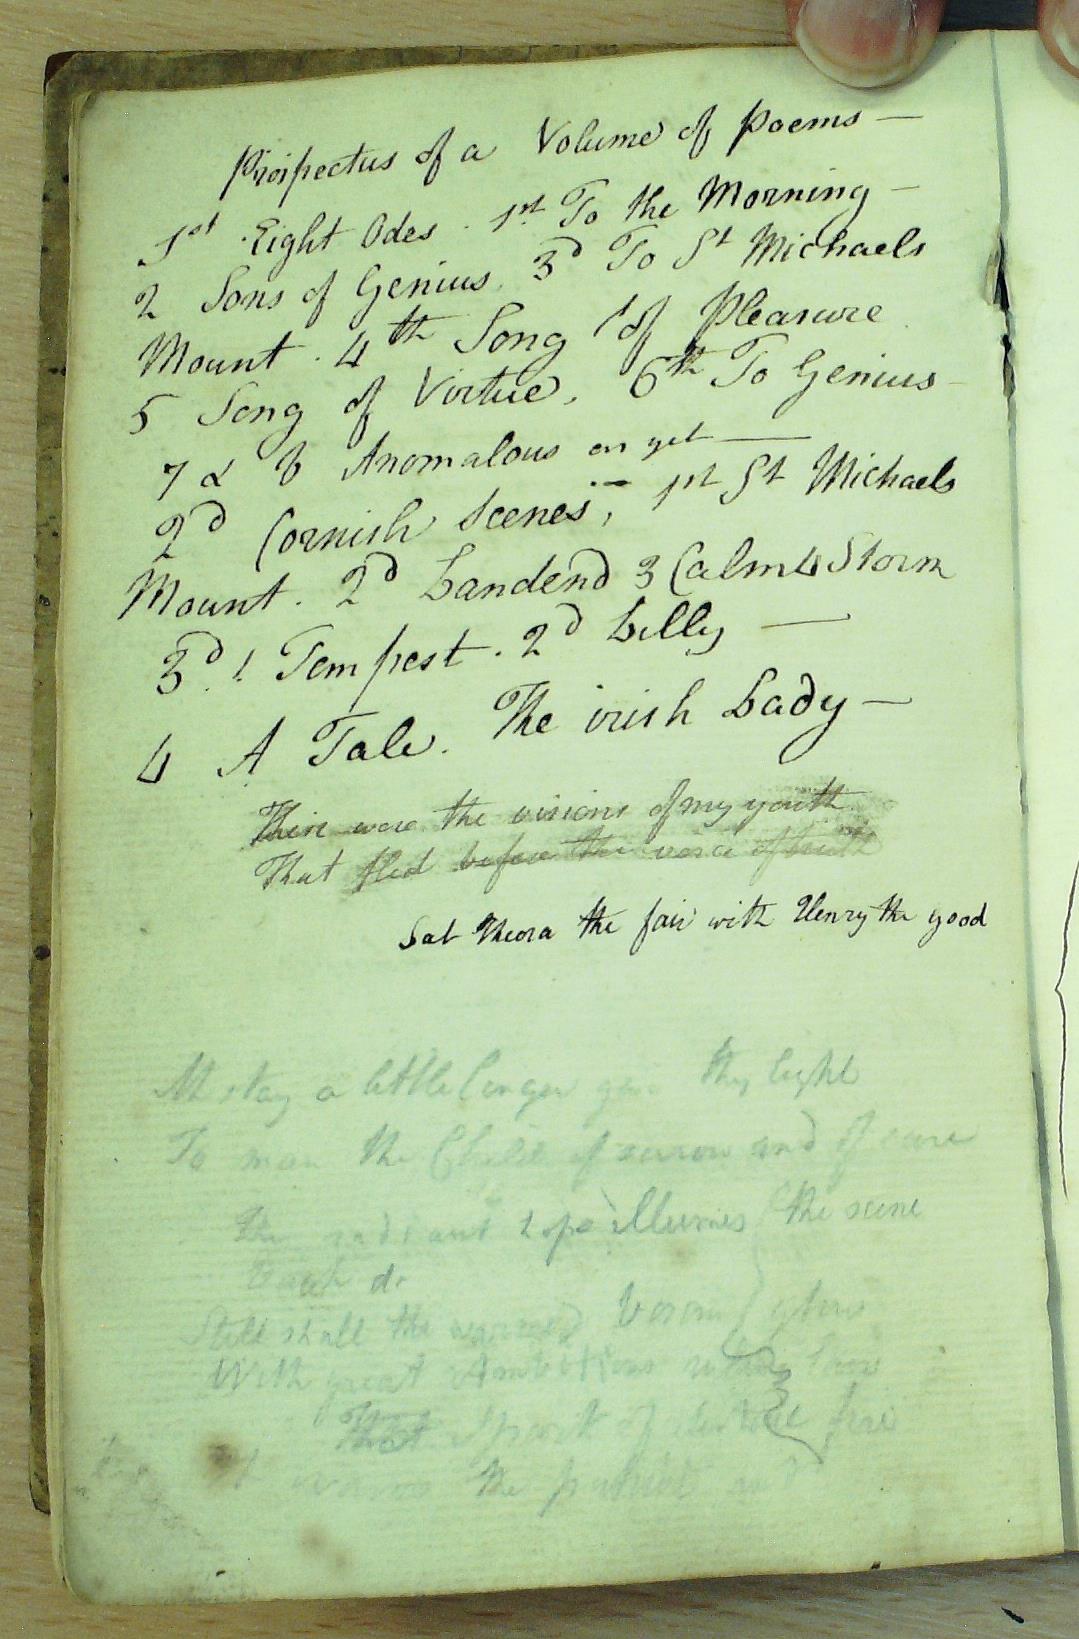 Prospectus of a Volume of Poems —
1st Eight Odes. 1st To the Morning —
2 Sons of Genius. 3d To St Michaels
Mount. 4th Song of Pleasure
5 Song of Virtue. 6th To Genius —
7 & 8 Anomalous as yet —
2d Cornish Scenes, 1st St Michaels
Mount. 2d Landend 3 Calm 4 Storm
3d. 1 Tempest. 2d Lilly —
4 A Tale. The irish Lady —
These were the visions of my youth
That fled before the voice of truth
Sat Theora the fair with Henry the good
Ah stay a little longer give thy light
To man the Child of sorrow and of care
The radiant hope illumes the scene
Still shall the warmed bosom glow
With great Ambitions
That Spirit of fire
warms the